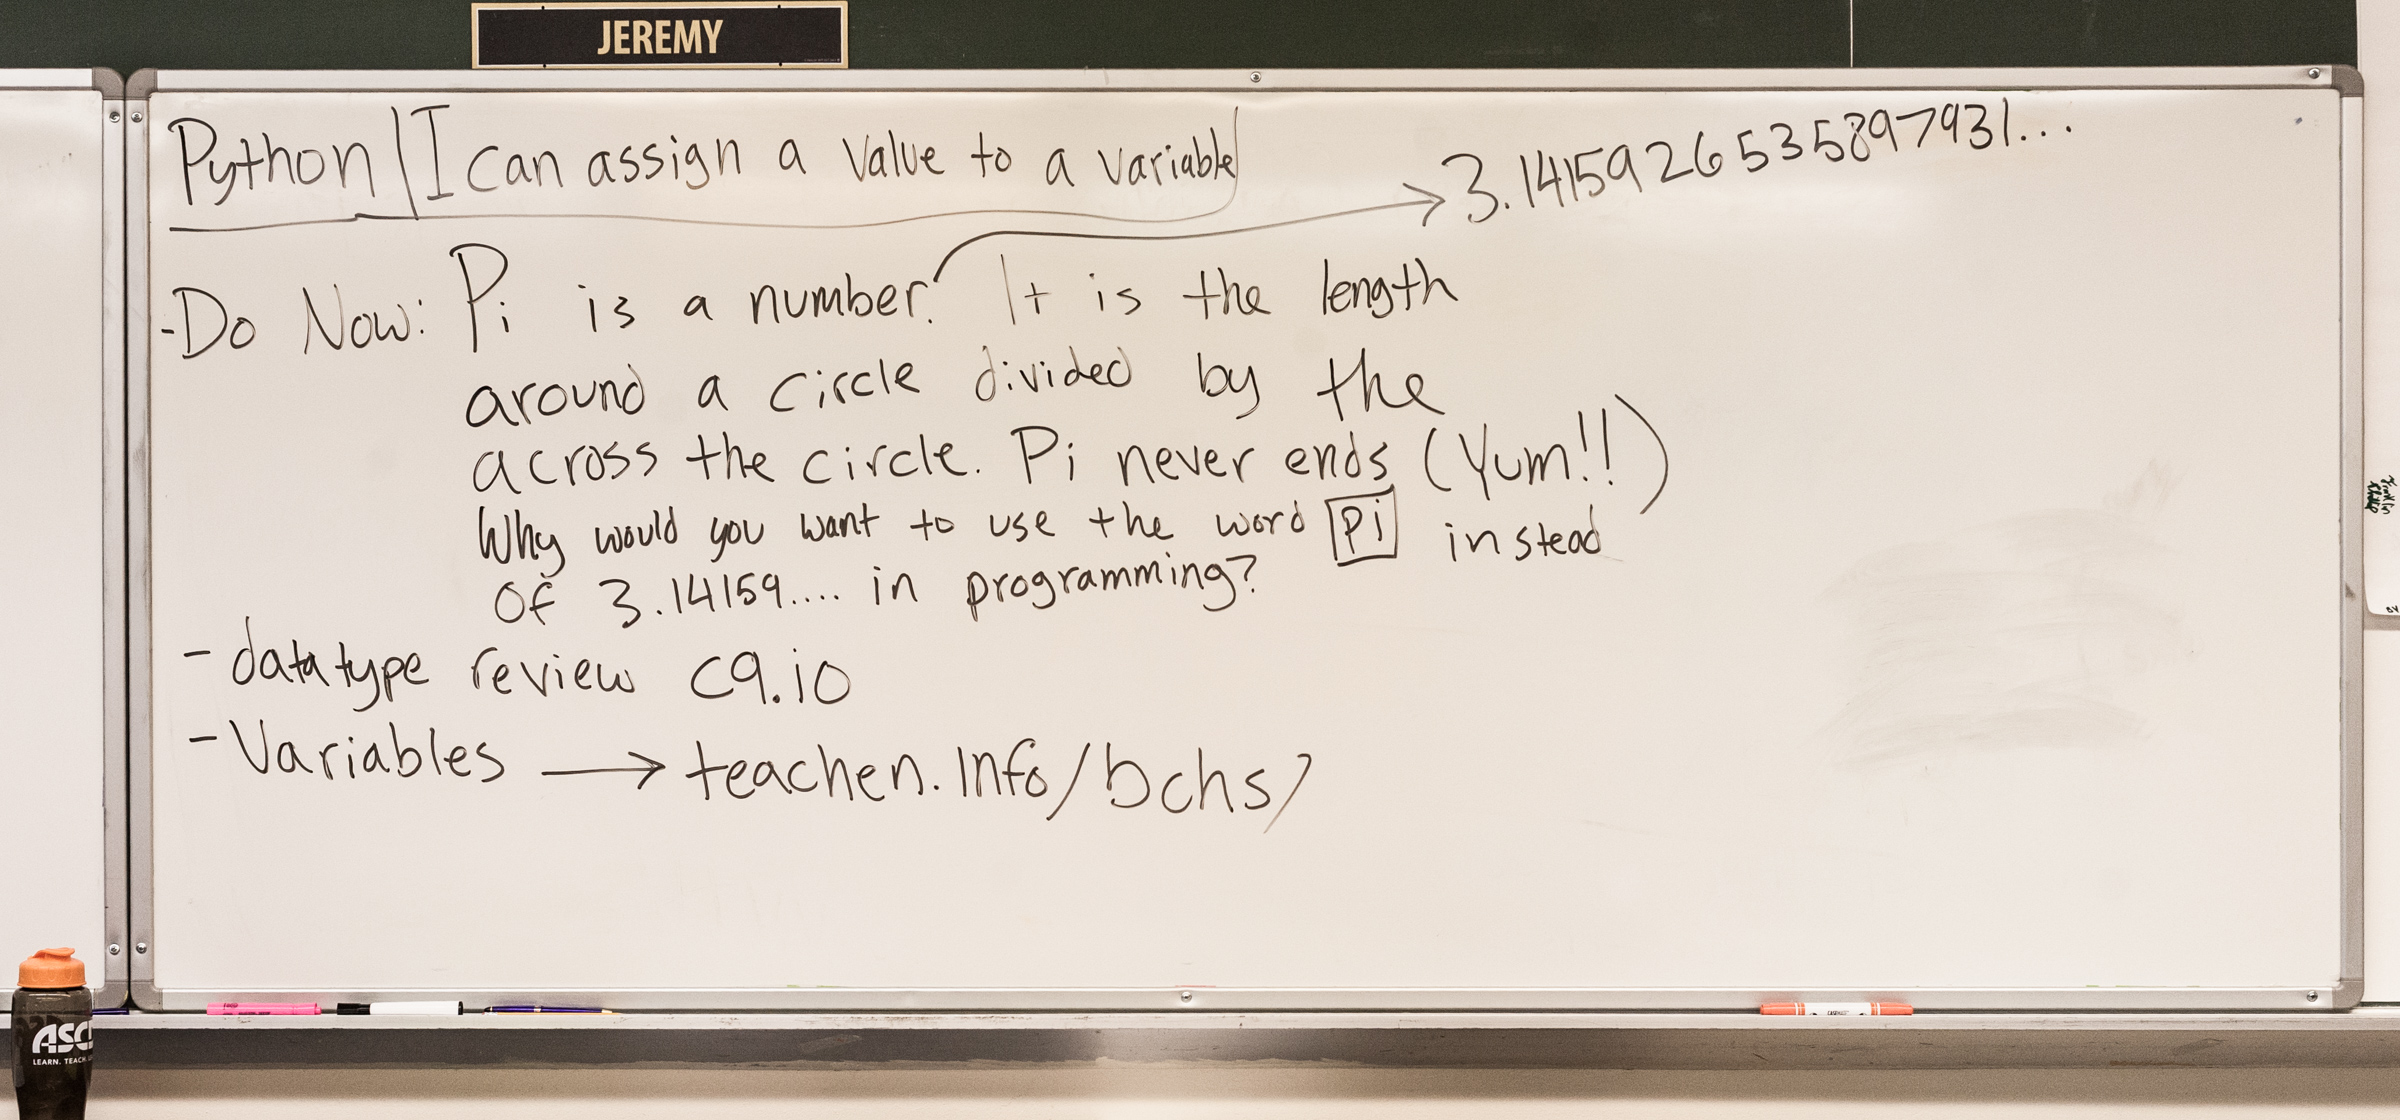 JEREMY
Python | I can assign a value to a variable
3.141592653589 7931...
-Do Now: Pi is a number. It is the length
around a circle divided by the
across the circle. Pi never ends (Yum!!)
Why would you want to use the word pi instead
of 3.14159.... in programming?
- datatype review c9.io
- Variables → teachen.info/bchs/
ASC
LEARN. TEACH.